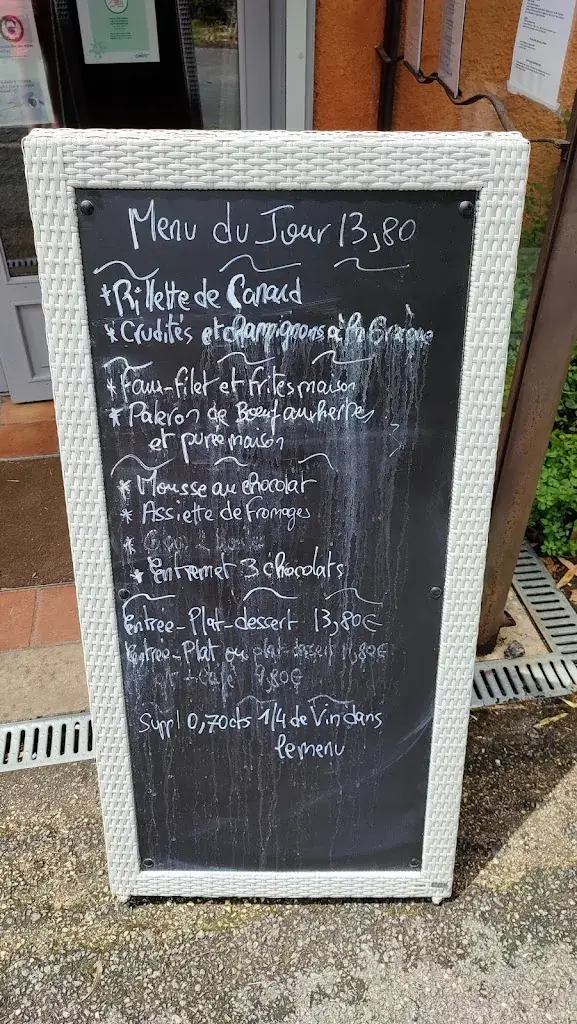 Menu du Jour 13,80
* Rillette de Canard
* Crudités et champignons à la Grecque
* Faux-filet et frites maison
* Paleron de Boeuf aux herbes
et puree maison
* Mousse au chocolat
* Assiette de Fromages
* Entremet 3 chocolats
Entrée-Plat-dessert 13,80€
Entrée-Plat ou plat-dessert 11,80€
9,80€
Suppl 0,70cts 1/4 de Vin dans
le menu